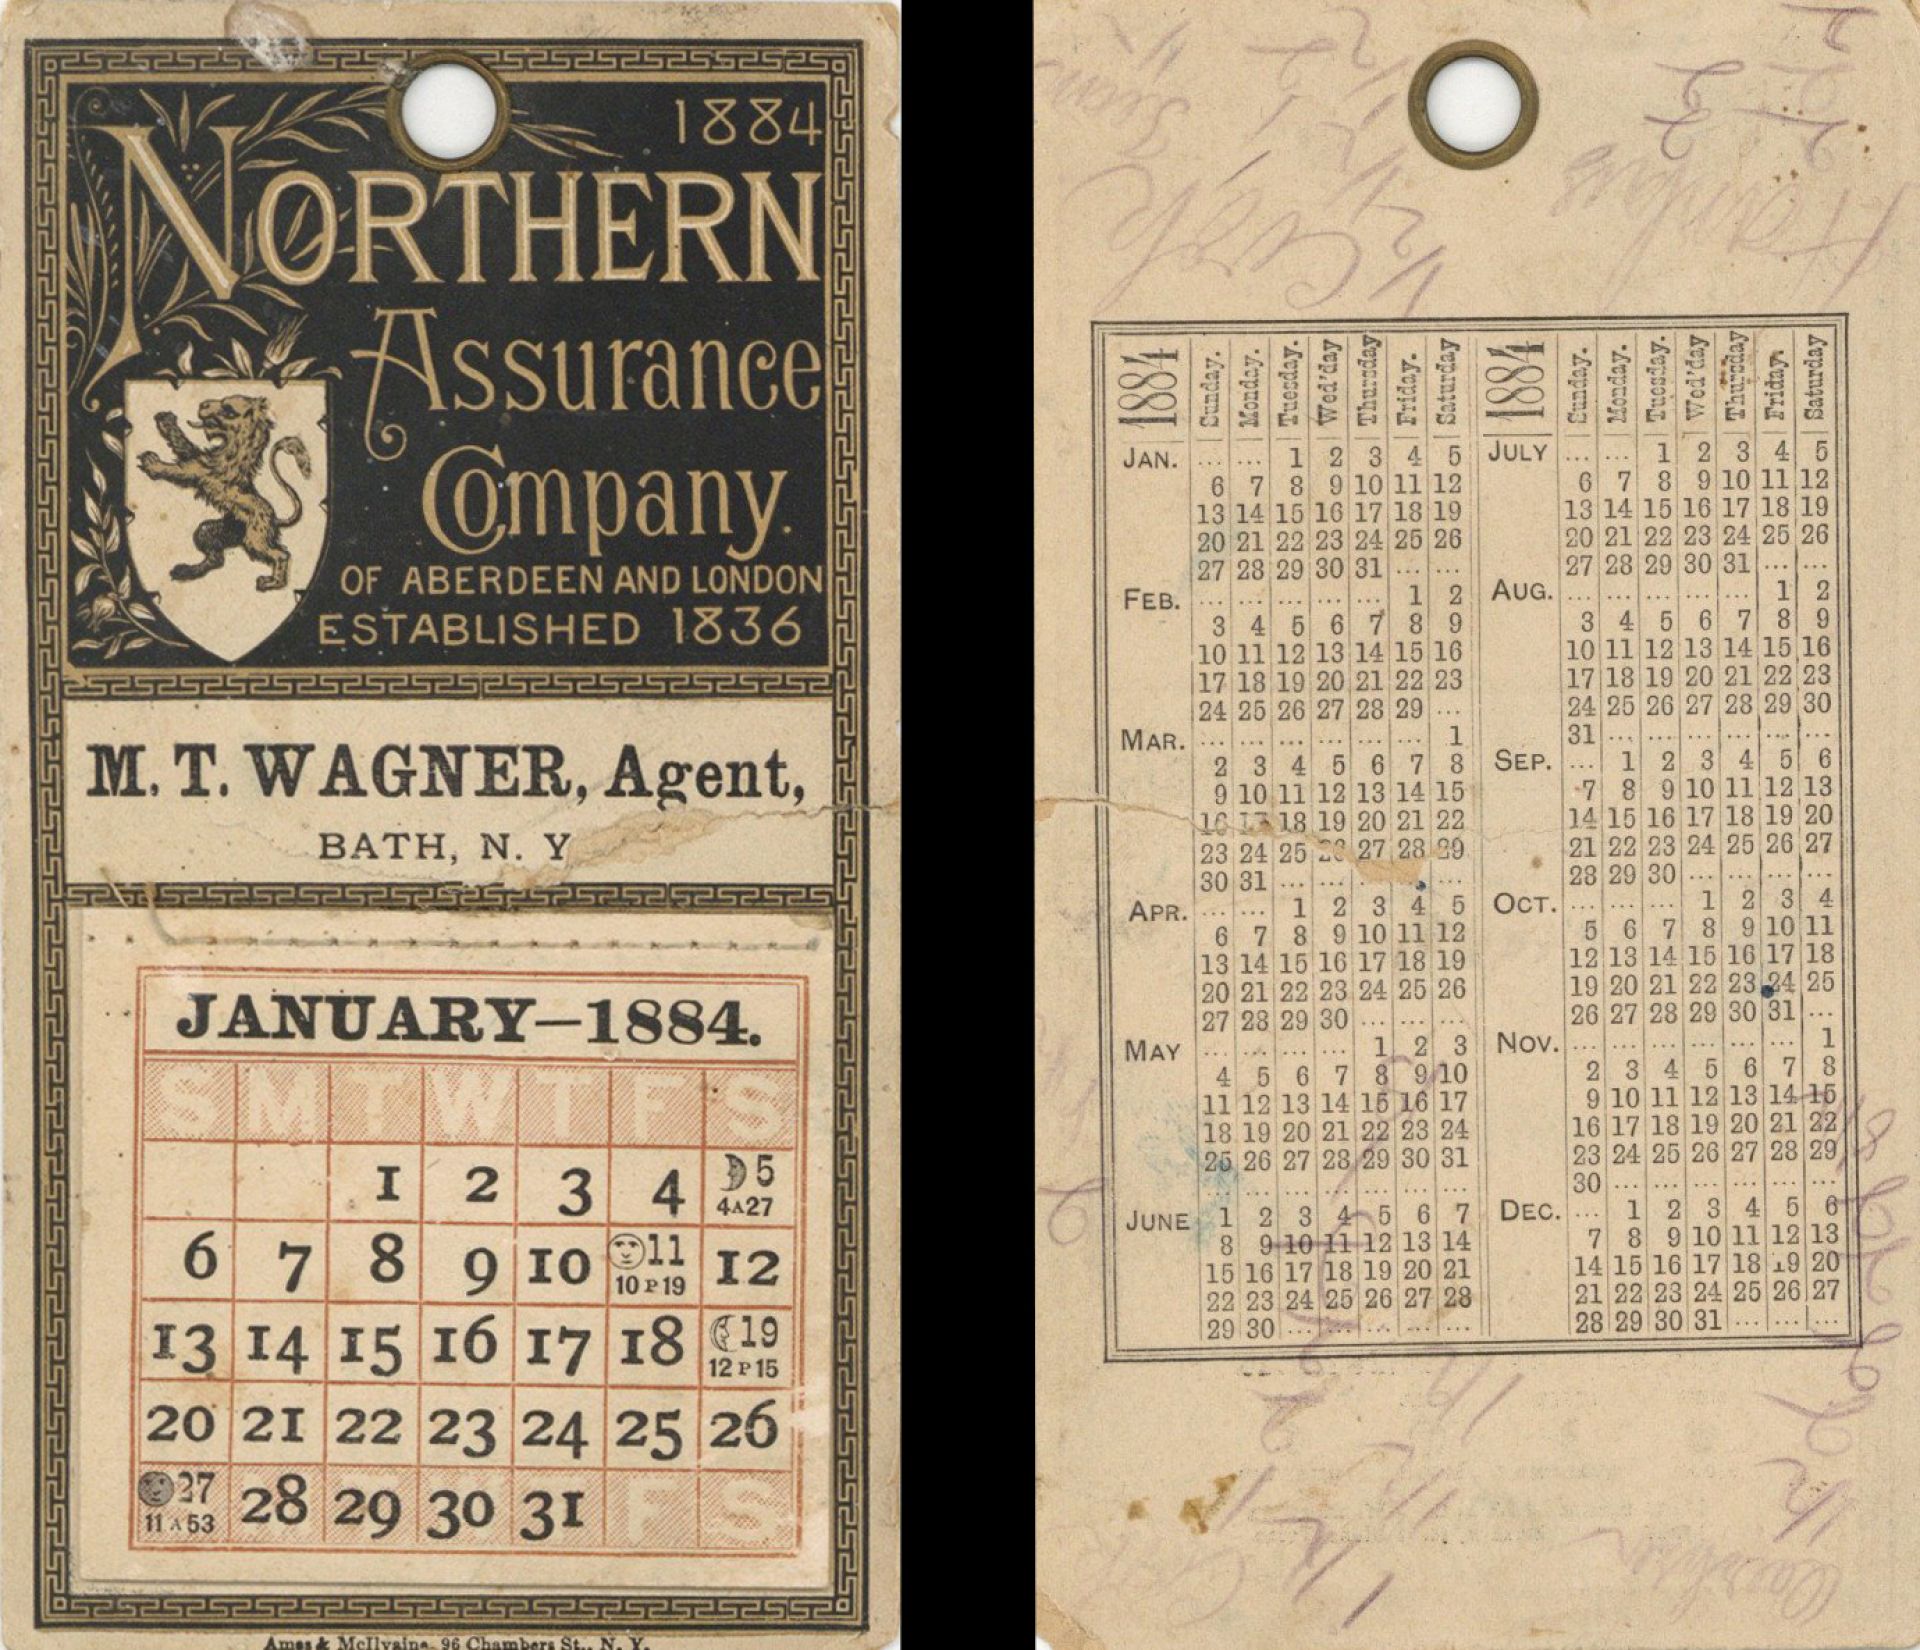 1884
NORTHERN
Assurance
Company.
OF ABERDEEN AND LONDON
ESTABLISHED 1836
M. T. WAGNER, Agent,
BATH, N. Y
JANUARY—1884.
S M T W T F S
1 2 3 4 5
4 A 27
6 7 8 9 10 11 12
10 P 19
13 14 15 16 17 18 19
12 P 15
20 21 22 23 24 25 26
27 28 29 30 31 F S
11 A 53
Ames & McIlvaine, 96 Chambers St., N. Y.
1884 Sunday. Monday. Tuesday. Wed'day Thursday Friday. Saturday
JAN. ... ... 1 2 3 4 5
6 7 8 9 10 11 12
13 14 15 16 17 18 19
20 21 22 23 24 25 26
27 28 29 30 31 ... ...
FEB. ... ... ... ... ... 1 2
3 4 5 6 7 8 9
10 11 12 13 14 15 16
17 18 19 20 21 22 23
24 25 26 27 28 29 ...
MAR. ... ... ... ... ... ... 1
2 3 4 5 6 7 8
9 10 11 12 13 14 15
16 17 18 19 20 21 22
23 24 25 26 27 28 29
30 31 ... ... ... ... ...
APR. ... ... 1 2 3 4 5
6 7 8 9 10 11 12
13 14 15 16 17 18 19
20 21 22 23 24 25 26
27 28 29 30 ... ... ...
MAY ... ... ... ... 1 2 3
4 5 6 7 8 9 10
11 12 13 14 15 16 17
18 19 20 21 22 23 24
25 26 27 28 29 30 31
... ... ... ... ... ... ...
JUNE 1 2 3 4 5 6 7
8 9 10 11 12 13 14
15 16 17 18 19 20 21
22 23 24 25 26 27 28
29 30 ... ... ... ... ...
1884 Sunday. Monday. Tuesday. Wed'day Thursday Friday. Saturday
JULY ... ... 1 2 3 4 5
6 7 8 9 10 11 12
13 14 15 16 17 18 19
20 21 22 23 24 25 26
27 28 29 30 31 ... ...
AUG. ... ... ... ... ... 1 2
3 4 5 6 7 8 9
10 11 12 13 14 15 16
17 18 19 20 21 22 23
24 25 26 27 28 29 30
31 ... ... ... ... ... ...
SEP. ... 1 2 3 4 5 6
7 8 9 10 11 12 13
14 15 16 17 18 19 20
21 22 23 24 25 26 27
28 29 30 ... ... ... ...
OCT. ... ... ... 1 2 3 4
5 6 7 8 9 10 11
12 13 14 15 16 17 18
19 20 21 22 23 24 25
26 27 28 29 30 31 ...
NOV. ... ... ... ... ... ... 1
2 3 4 5 6 7 8
9 10 11 12 13 14 15
16 17 18 19 20 21 22
23 24 25 26 27 28 29
30 ... ... ... ... ... ...
DEC. ... 1 2 3 4 5 6
7 8 9 10 11 12 13
14 15 16 17 18 19 20
21 22 23 24 25 26 27
28 29 30 31 ... ... ...